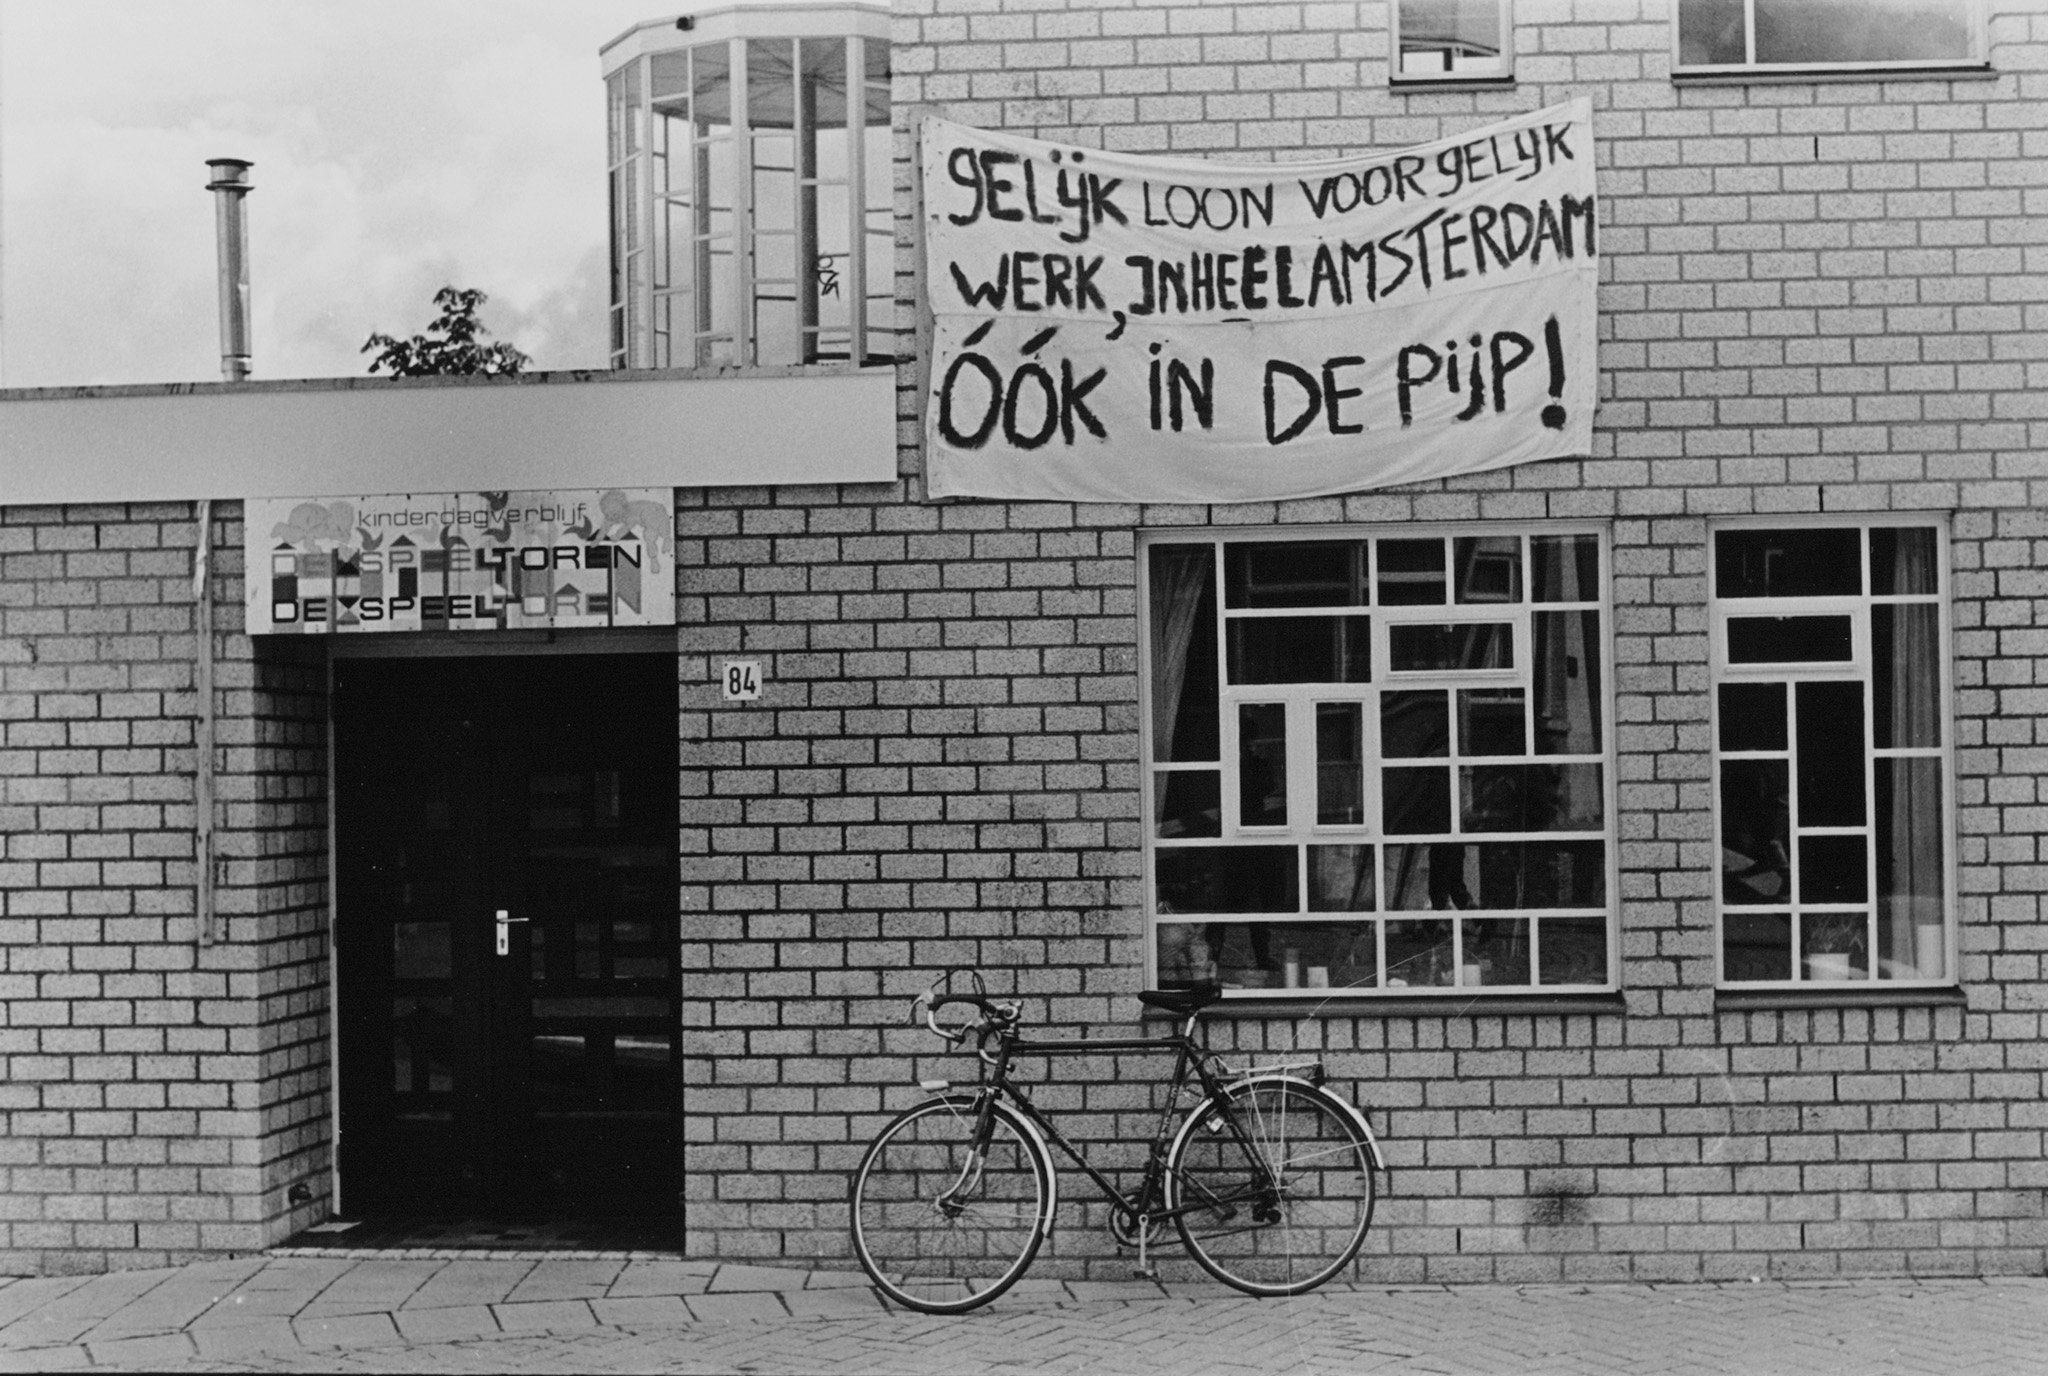 gELijK LOON VOOR gELIJK
WERK, INHEEL AMSTERDAM
ÓÓK iN DE PijP!
kinderdagverblijf
DE SPEELTOREN
DE SPEELTOREN
84